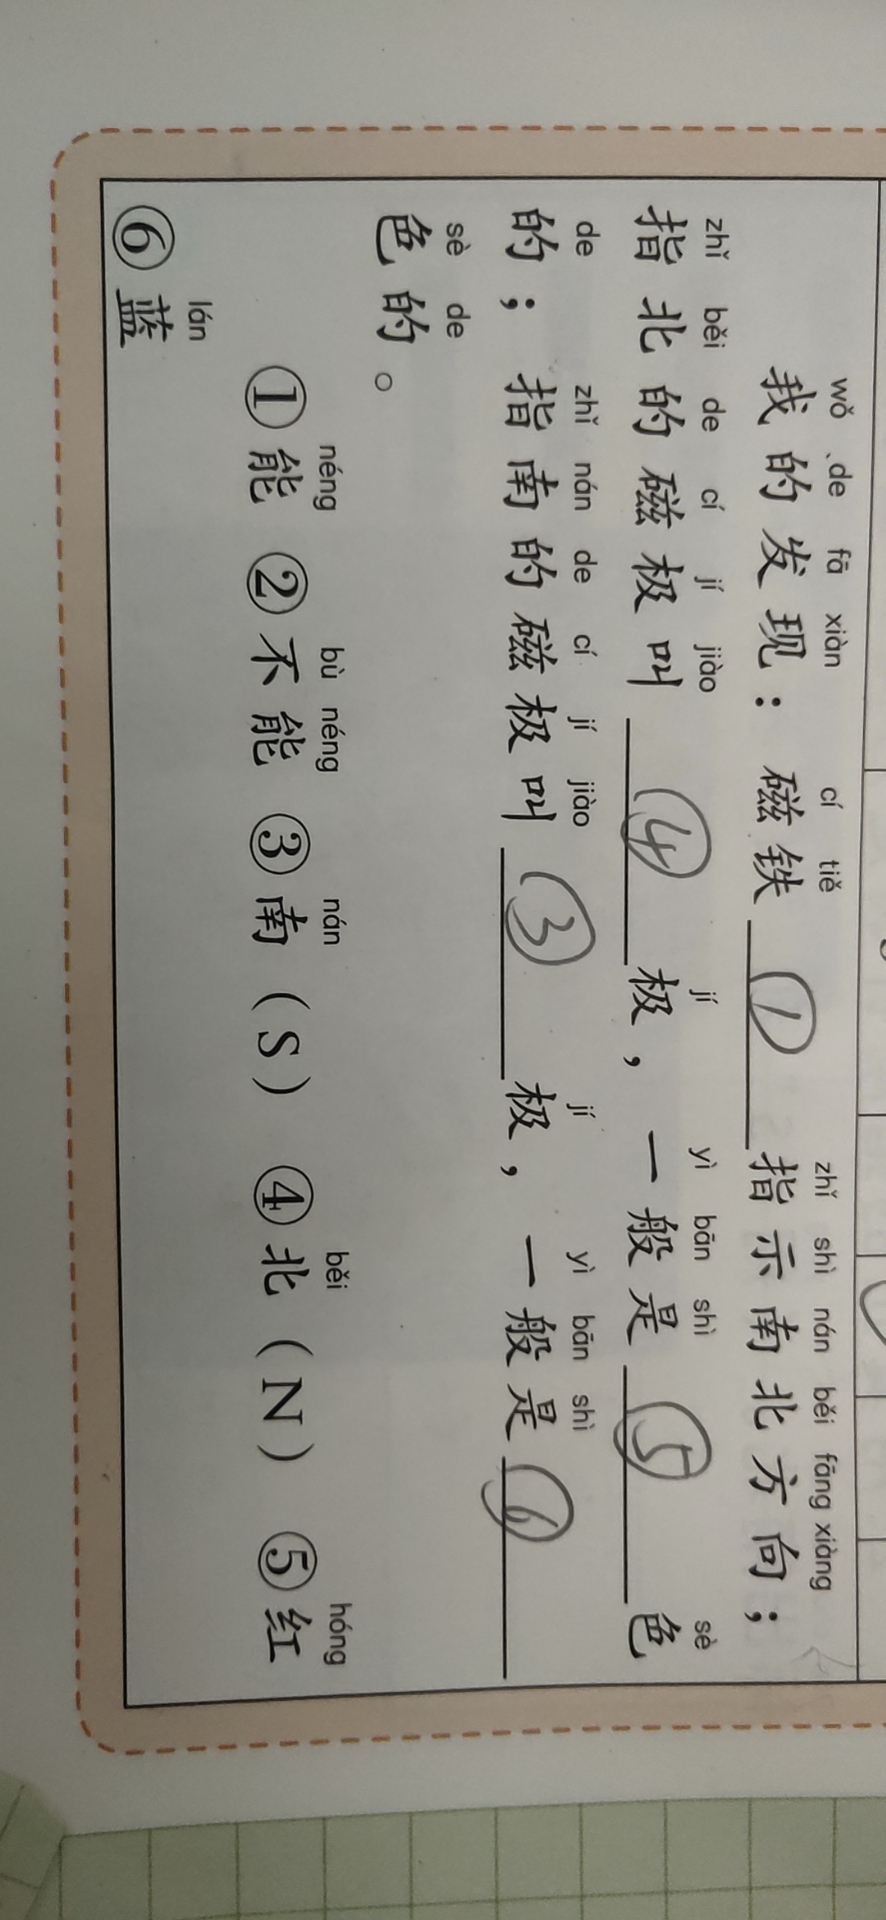 wǒ de fā xiàn cí tiě zhǐ shì nán běi fāng xiàng
我的发现：磁铁①指示南北方向；
zhǐ běi de cí jí jiào jí yì bān shì sè
指北的磁极叫④极，一般是⑤色
de zhǐ nán de cí jí jiào jí yì bān shì
的；指南的磁极叫③极，一般是⑥
sè de
色的。
néng bù néng nán běi hóng
①能 ②不能 ③南（S） ④北（N） ⑤红
lán
⑥蓝